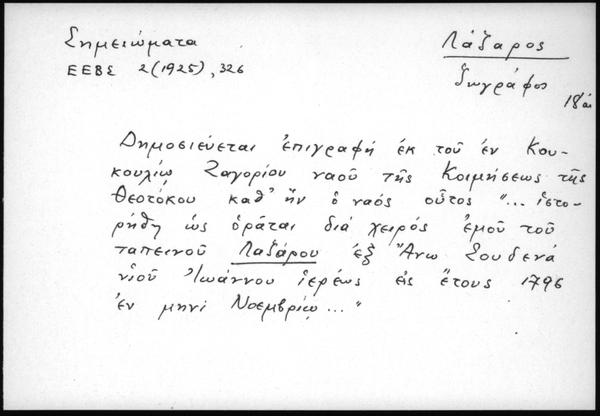 Σημειώματα
ΕΕΒΣ 2 (1925), 326
Λάζαρος
ζωγράφος
18 αἰ
Δημοσιεύεται ἐπιγραφή ἐκ τοῦ ἐν Κου-
κουλίῳ Ζαγορίου ναοῦ τῆς Κοιμήσεως τῆς
Θεοτόκου καθ' ἥν ὁ ναός οὗτος "... ἱστο-
ρήθη ὡς ὁρᾶται διά χειρός ἐμοῦ τοῦ
ταπεινοῦ Λαζάρου ἐξ Ἄνω Σουδενά
υἱοῦ Ἰωάννου ἱερέως εἰς ἔτους 1796
ἐν μηνί Νοεμβρίῳ ..."